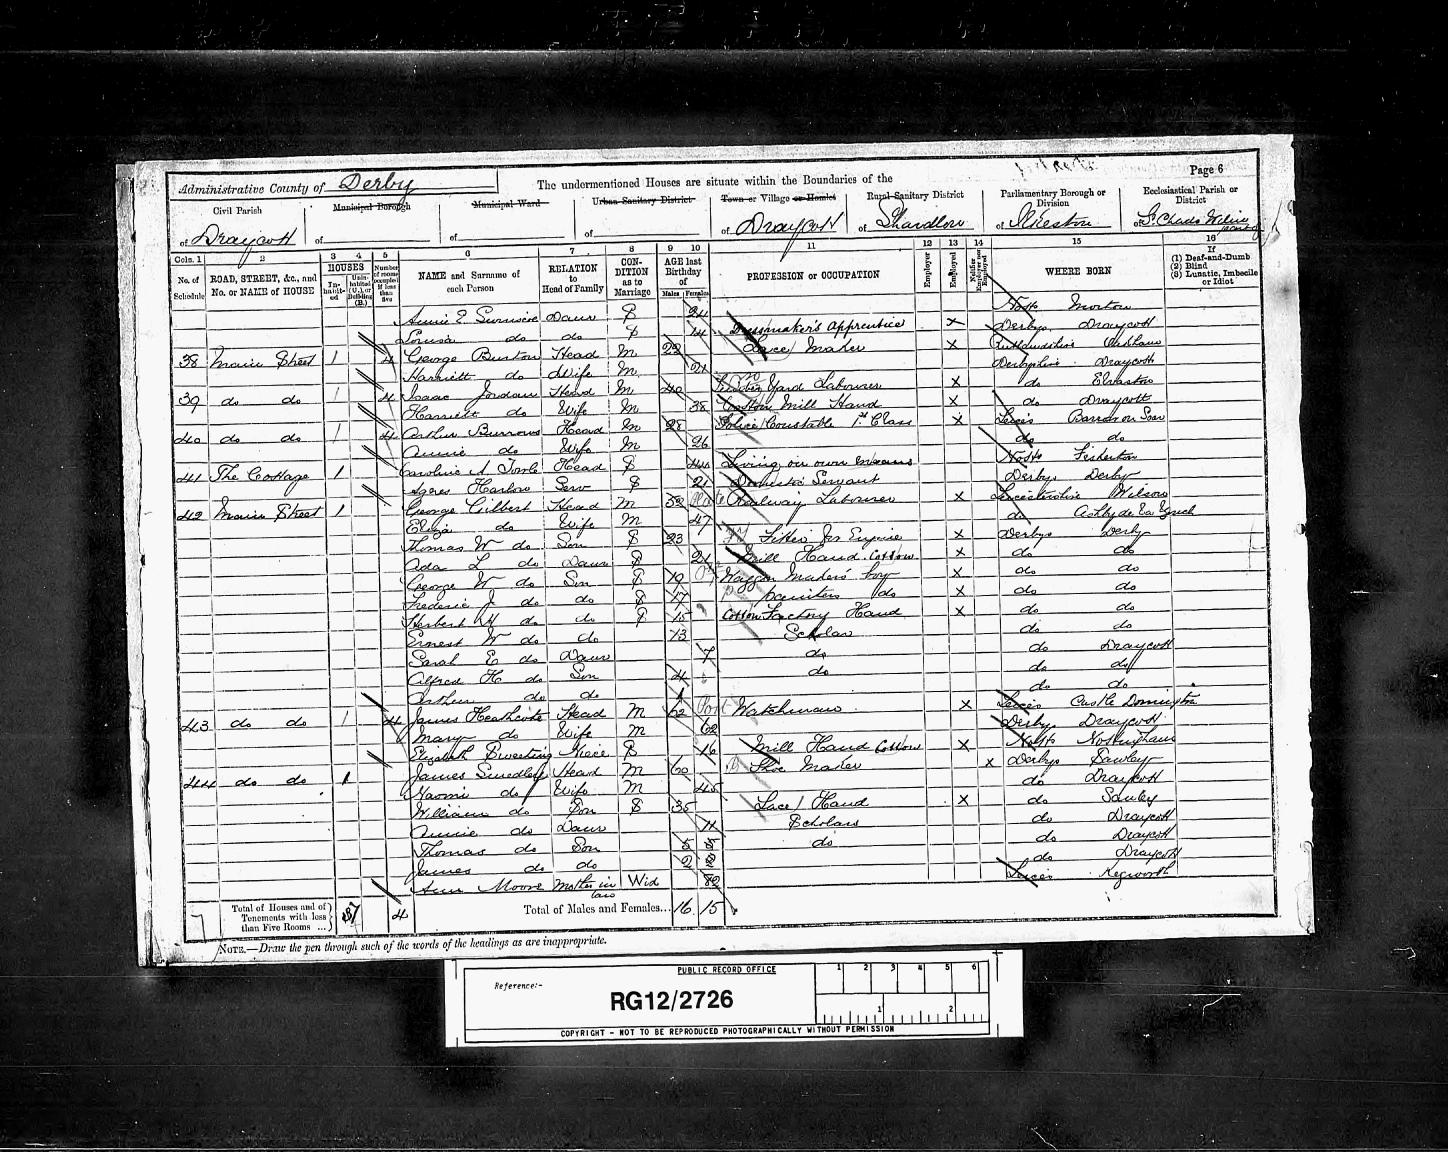 Page 6
Administrative County of Derby
The undermentioned Houses are situate within the Boundaries of the
Civil Parish
of Draycott
Municipal Borough
of
Municipal Ward
of
Urban Sanitary District
of
Town or Village or Hamlet
of Draycott
Rural Sanitary District
of Shardlow
Parliamentary Borough or Division
of Ilkeston
Ecclesiastical Parish or District
of St. Chads Wilne
Cols. 1 2 3 4 5 6 7 8 9 10 11 12 13 14 15 16
No. of Schedule
ROAD, STREET, &c., and No. or NAME of HOUSE
HOUSES
Inhabited
Uninhabited (U.), or Building (B.)
Number of rooms occupied if less than five
NAME and Surname of each Person
RELATION to Head of Family
CONDITION as to Marriage
AGE last Birthday of
Males Females
PROFESSION or OCCUPATION
Employer
Employed
Neither Employer nor Employed
WHERE BORN
If
(1) Deaf-and-Dumb
(2) Blind
(3) Lunatic, Imbecile or Idiot
Annie E. Daur S 24 Notts Morton
Louisa do do S 14 Dressmaker's Apprentice X Derbys. Draycott
38 Main Street 1 4 George Burton Head M 22 Lace Maker X Rutlandshire
Harriett do Wife M 21 Derbyshire Draycott
39 do do 1 4 Isaac Jordan Head M 40 Yard Labourer X do Elvaston
Harriett do Wife M 38 Cotton Mill Hand X do Draycott
40 do do 1 4 Arthur Burrows Head M 28 Police Constable 1st Class X Leics Barrow on Soar
Annie do Wife M 26 do do
41 The Cottage 1 Caroline A Head S 44 Living on own means Notts
Agnes Harlow Serv S 21 Domestic Servant Derbys. Derby
42 Main Street 1 George Gilbert Head M 52 Railway Labourer X Leicestershire Wilson
Eliza do Wife M 47 do Ashby de la Zouch
Thomas W do Son S 23 Fitter Jos Engine X Derbys Derby
Ada L do Daur S 21 Mill Hand Cotton X do do
George W do Son S 19 Waggon Makers' boy X do do
Frederic J. do do S 17 painters do X do do
Herbert H do do S 15 Cotton Factory Hand X do do
Ernest W do do 13 Scholar do do
Sarah E do Daur 7 do do Draycott
Alfred H do Son 4 do do do
Arthur do do 1 do do
43 do do 1 4 James Heathcote Head M 62 Watchman X Leics Castle Donnington
Mary do Wife M 62 Derbys Draycott
Elizabeth Niece S 16 Mill Hand Cotton X Notts Nottingham
44 do do 1 James Smedley Head M 60 Shoe Maker X Derbys Sawley
Naomi do Wife M 45 do Draycott
William do Son S 35 Lace Hand X do Sawley
Annie do Daur 11 Scholars do Draycott
Thomas do Son 5 do do Draycott
James do do 2 do Draycott
Ann Moore Mother in law Wid 82 Leics Kegworth
7 Total of Houses and of Tenements with less than Five Rooms ... 7 4 Total of Males and Females... 16 15
NOTE.—Draw the pen through such of the words of the headings as are inappropriate.
PUBLIC RECORD OFFICE
Reference:-
RG12/2726
1 2 3 4 5 6
1 2
COPYRIGHT - NOT TO BE REPRODUCED PHOTOGRAPHICALLY WITHOUT PERMISSION